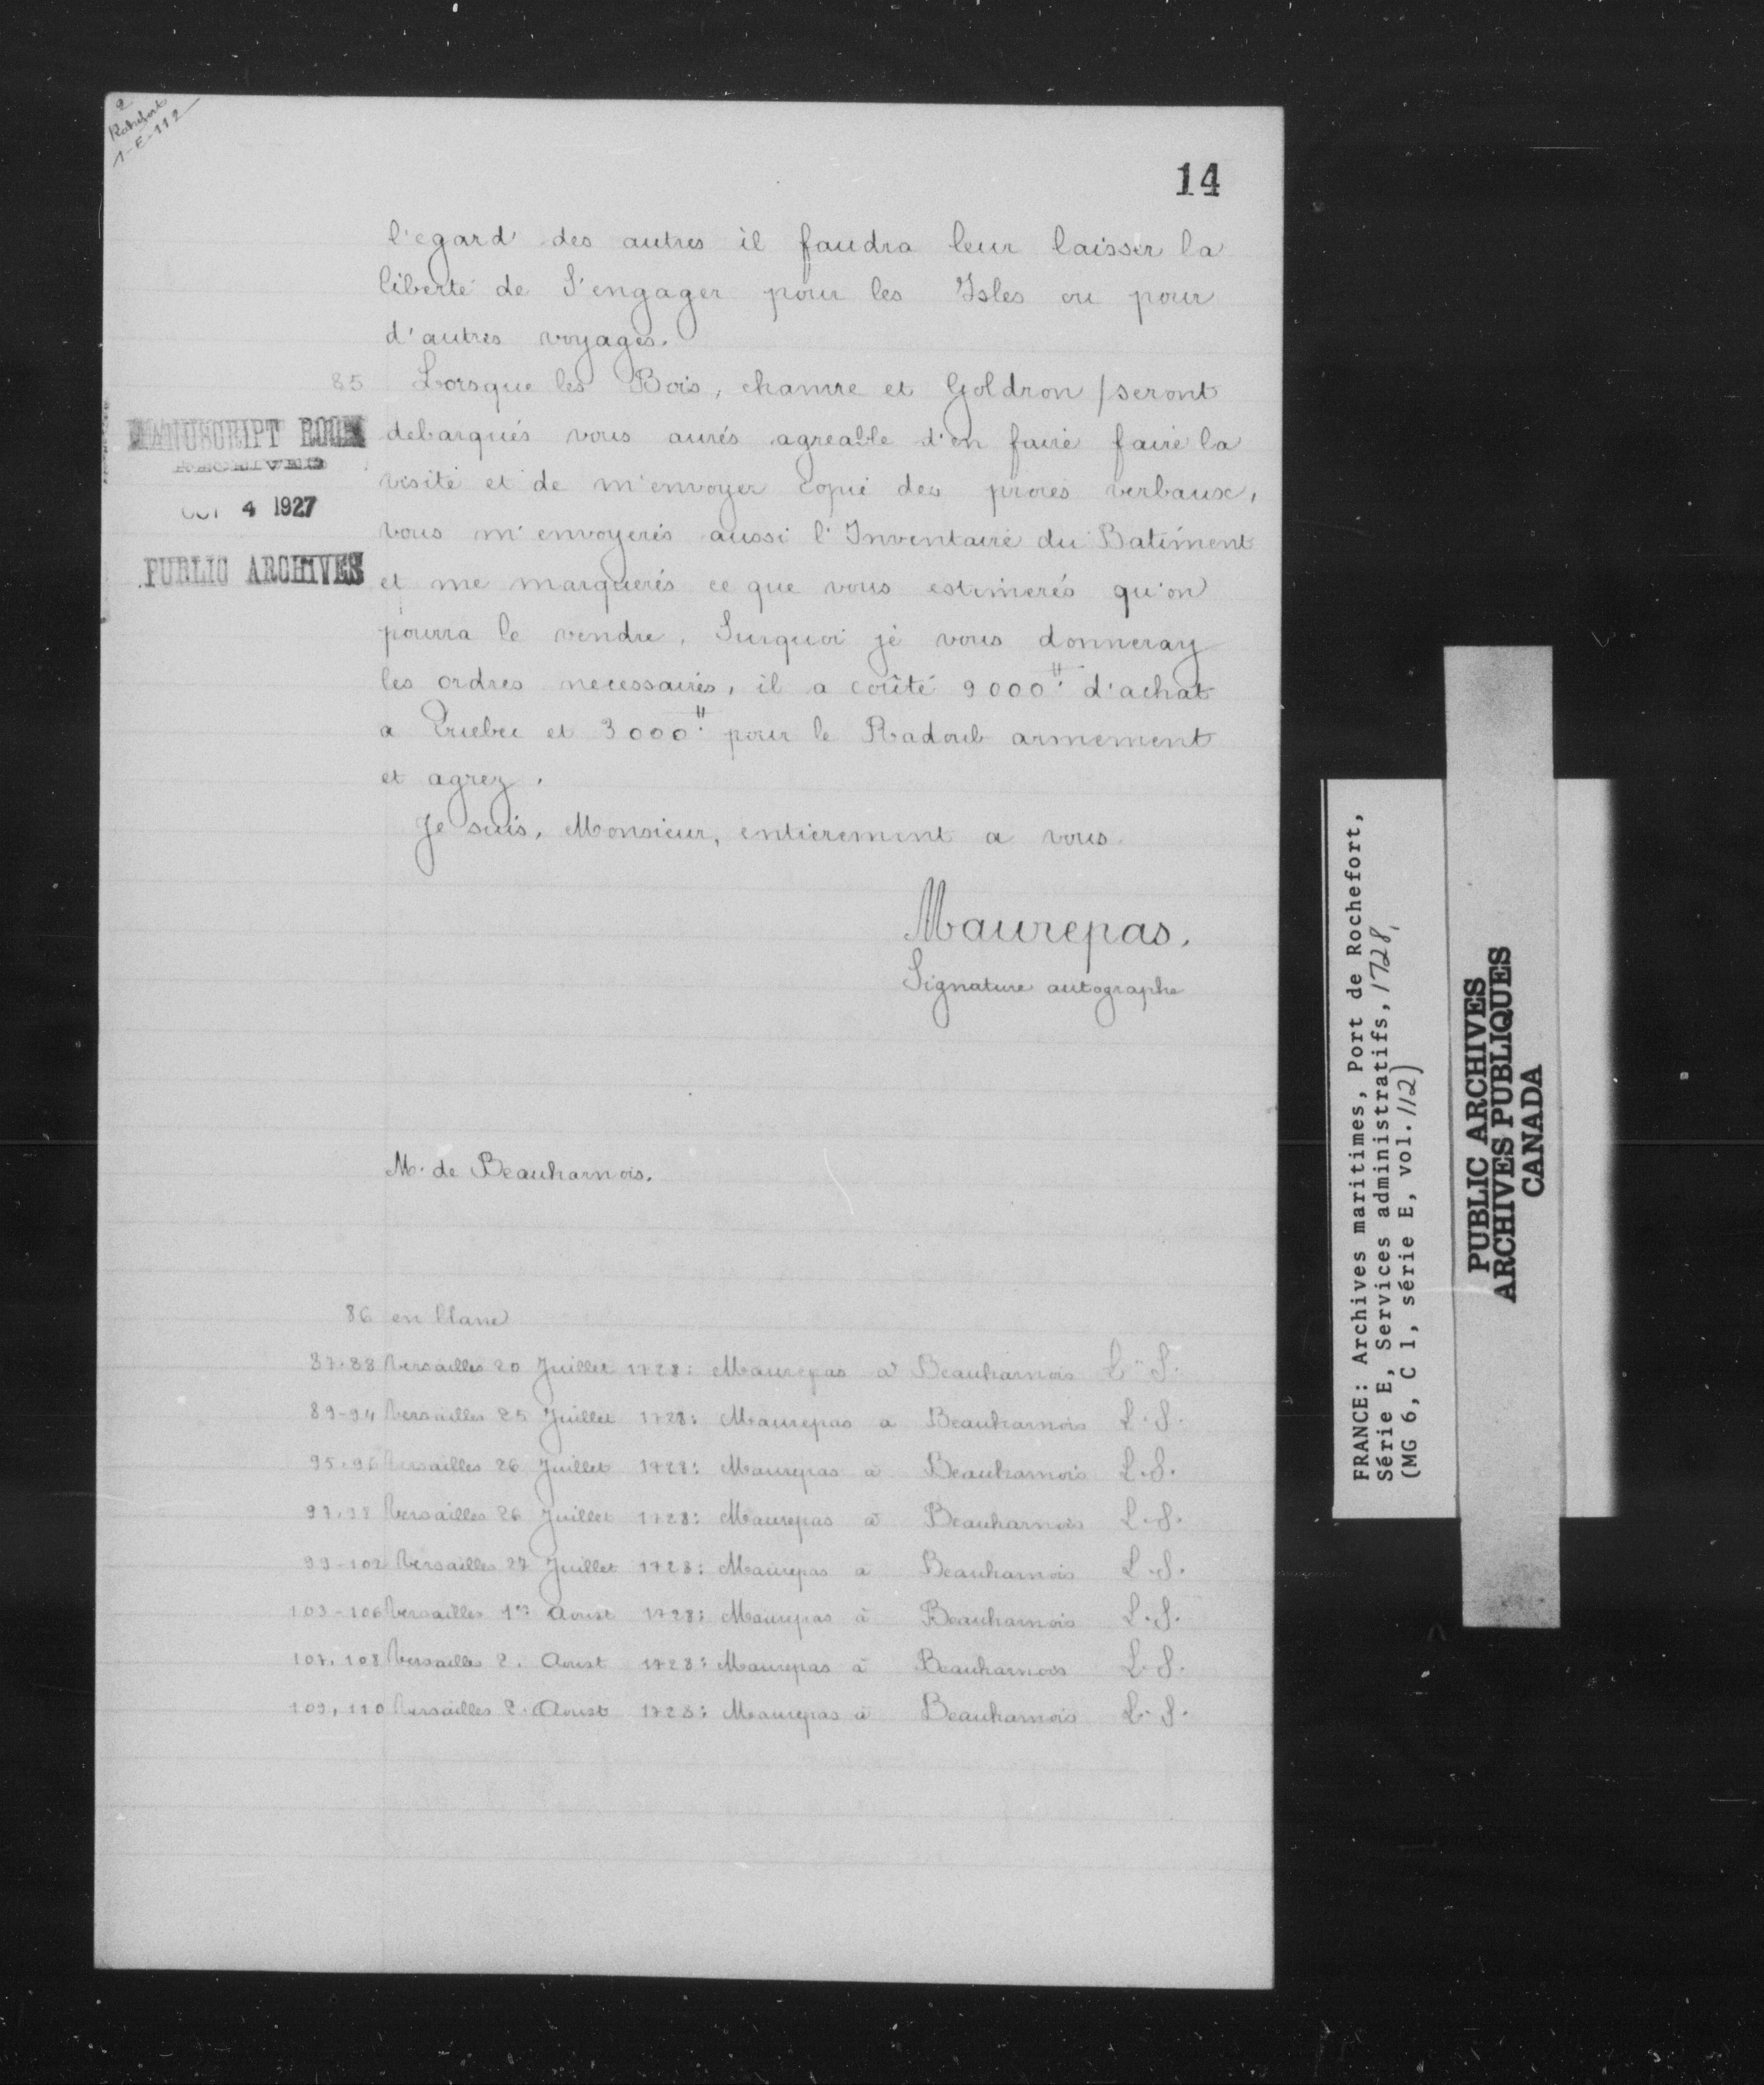 2
Rochefort
1-E-112
14
l'egard des autres il faudra leur laisser la
liberté de S'engager pour les Isles ou pour
d'autres voyages.
85 Lorsque les Bois, chanvre et Goldron / seront
MANUSCRIPT ROOM
RECEIVED
OCT 4 1927
PUBLIC ARCHIVES
debarqués vous aurés agreable d'en faire faire la
visite et de m'envoyer copie des procés verbaux,
vous m'envoyerés aussi l'Inventaire du Batiment
et me marquerés ce que vous estimerés qu'on
pourra le vendre. Surquoi je vous donneray
les ordres necessaires, il a coûté 9000ᴴ d'achat
a Quebec et 3000ᴴ pour le Radoub armement
et agrez.
Je suis, Monsieur, entierement a vous.
Maurepas.
Signature autographe
M. de Beauharnois.
86 en blanc
87-88 Versailles 20 Juillet 1728: Maurepas à Beauharnois L. S.
89-94 Versailles 25 Juillet 1728: Maurepas a Beauharnois L. S.
95-96 Versailles 26 Juillet 1728: Maurepas à Beauharnois L. S.
97-98 Versailles 26 Juillet 1728: Maurepas à Beauharnois L. S.
99-102 Versailles 27 Juillet 1728: Maurepas a Beauharnois L. S.
103-106 Versailles 1er Aoust 1728: Maurepas à Beauharnois L. S.
107, 108 Versailles 2. Aoust 1728: Maurepas à Beauharnois L. S.
109, 110 Versailles 2. Aoust 1728: Maurepas à Beauharnois L. S.
FRANCE: Archives maritimes, Port de Rochefort,
Série E, Services administratifs, 1728,
(MG 6, C 1, série E, vol. 112)
PUBLIC ARCHIVES
ARCHIVES PUBLIQUES
CANADA